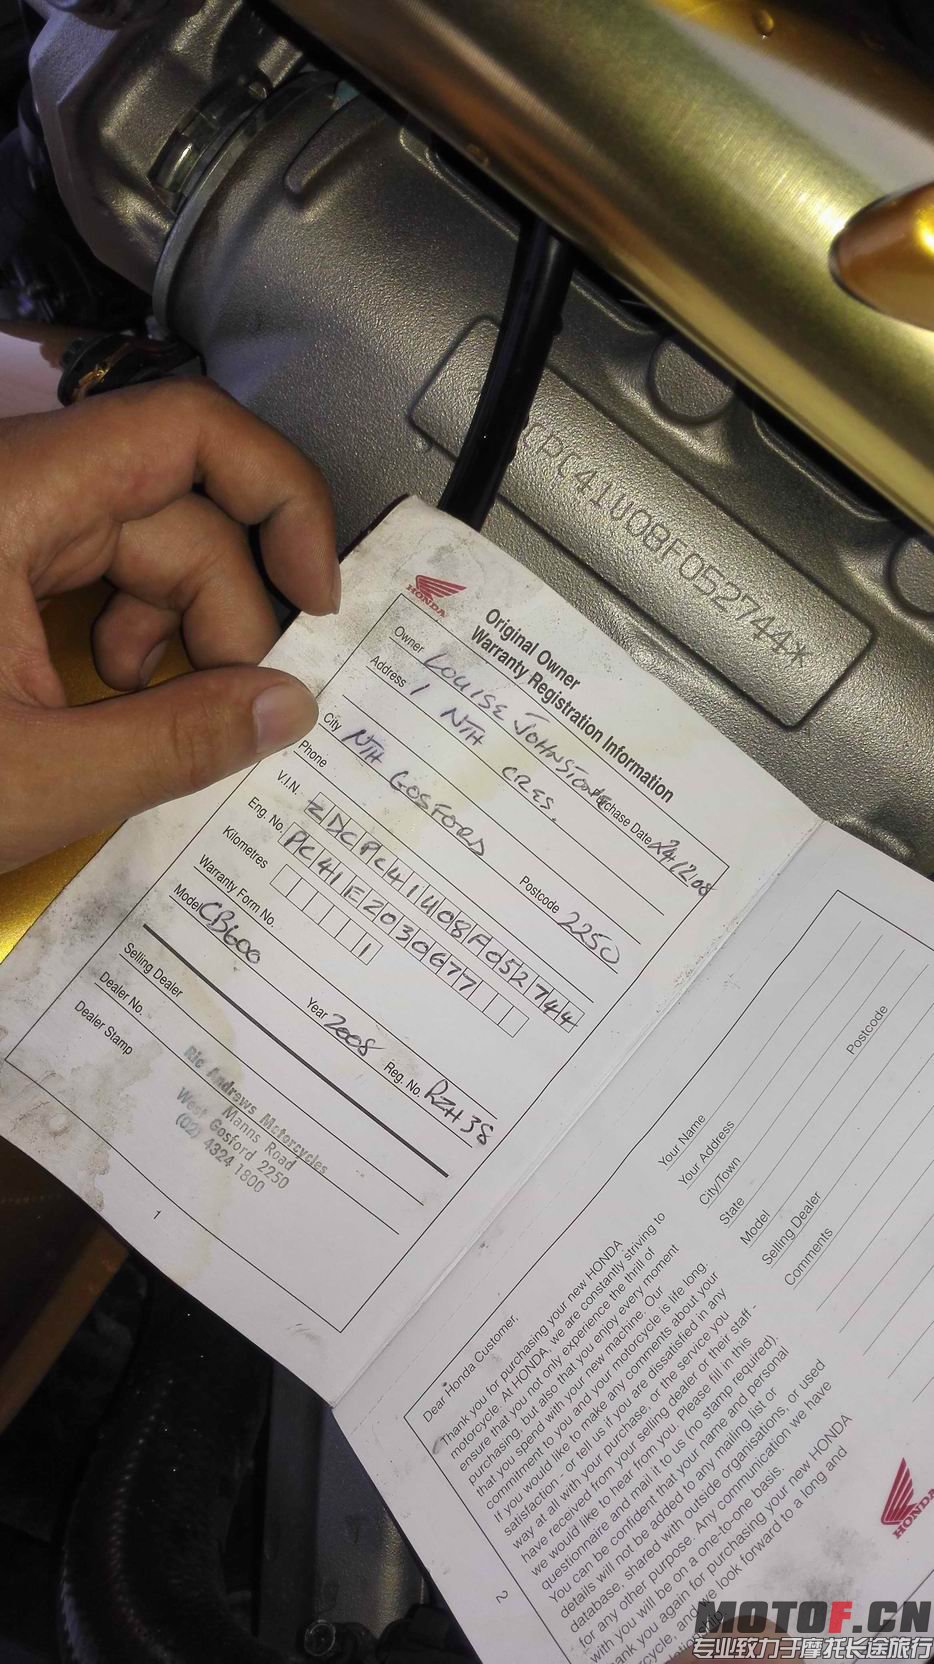 CPC41U08F052744*
HONDA
Original Owner
Warranty Registration Information
Owner LOUISE JOHNSTONE Purchase Date 24/12/08
Address 1 NTH CRES.
City NTH GOSFORD Postcode 2250
Phone
V.I.N. ZDCPC41U08F052744
Eng. No. PC41E2030677
Kilometres 1
Warranty Form No.
Model CB600 Year 2008 Reg. No. RZH38
Selling Dealer
Dealer No.
Dealer Stamp
Ric Andrews Motorcycles
Manns Road
West Gosford 2250
(02) 4324 1800
1
Postcode
Your Name
Your Address
City/Town
State
Model
Selling Dealer
Comments
Dear Honda Customer,
Thank you for purchasing your new HONDA
motorcycle. At HONDA, we are constantly striving to
ensure that you not only experience the thrill of
purchasing, but also that you enjoy every moment
that you spend with your new machine. Our
commitment to you and your motorcycle is life long.
If you would like to make any comments about your
satisfaction - or tell us if you are dissatisfied in any
way at all with your purchase, or the service you
have received from your selling dealer or their staff -
we would like to hear from you. Please fill in this
questionnaire and mail it to us (no stamp required).
You can be confident that your name and personal
details will not be added to any mailing list or
database, shared with outside organisations, or used
for any other purpose. Any communication we have
with you will be on a one-to-one basis.
ank you again for purchasing your new HONDA
cycle, and we look forward to a long and
2
HONDA
MOTOF.CN
专业致力于摩托长途旅行